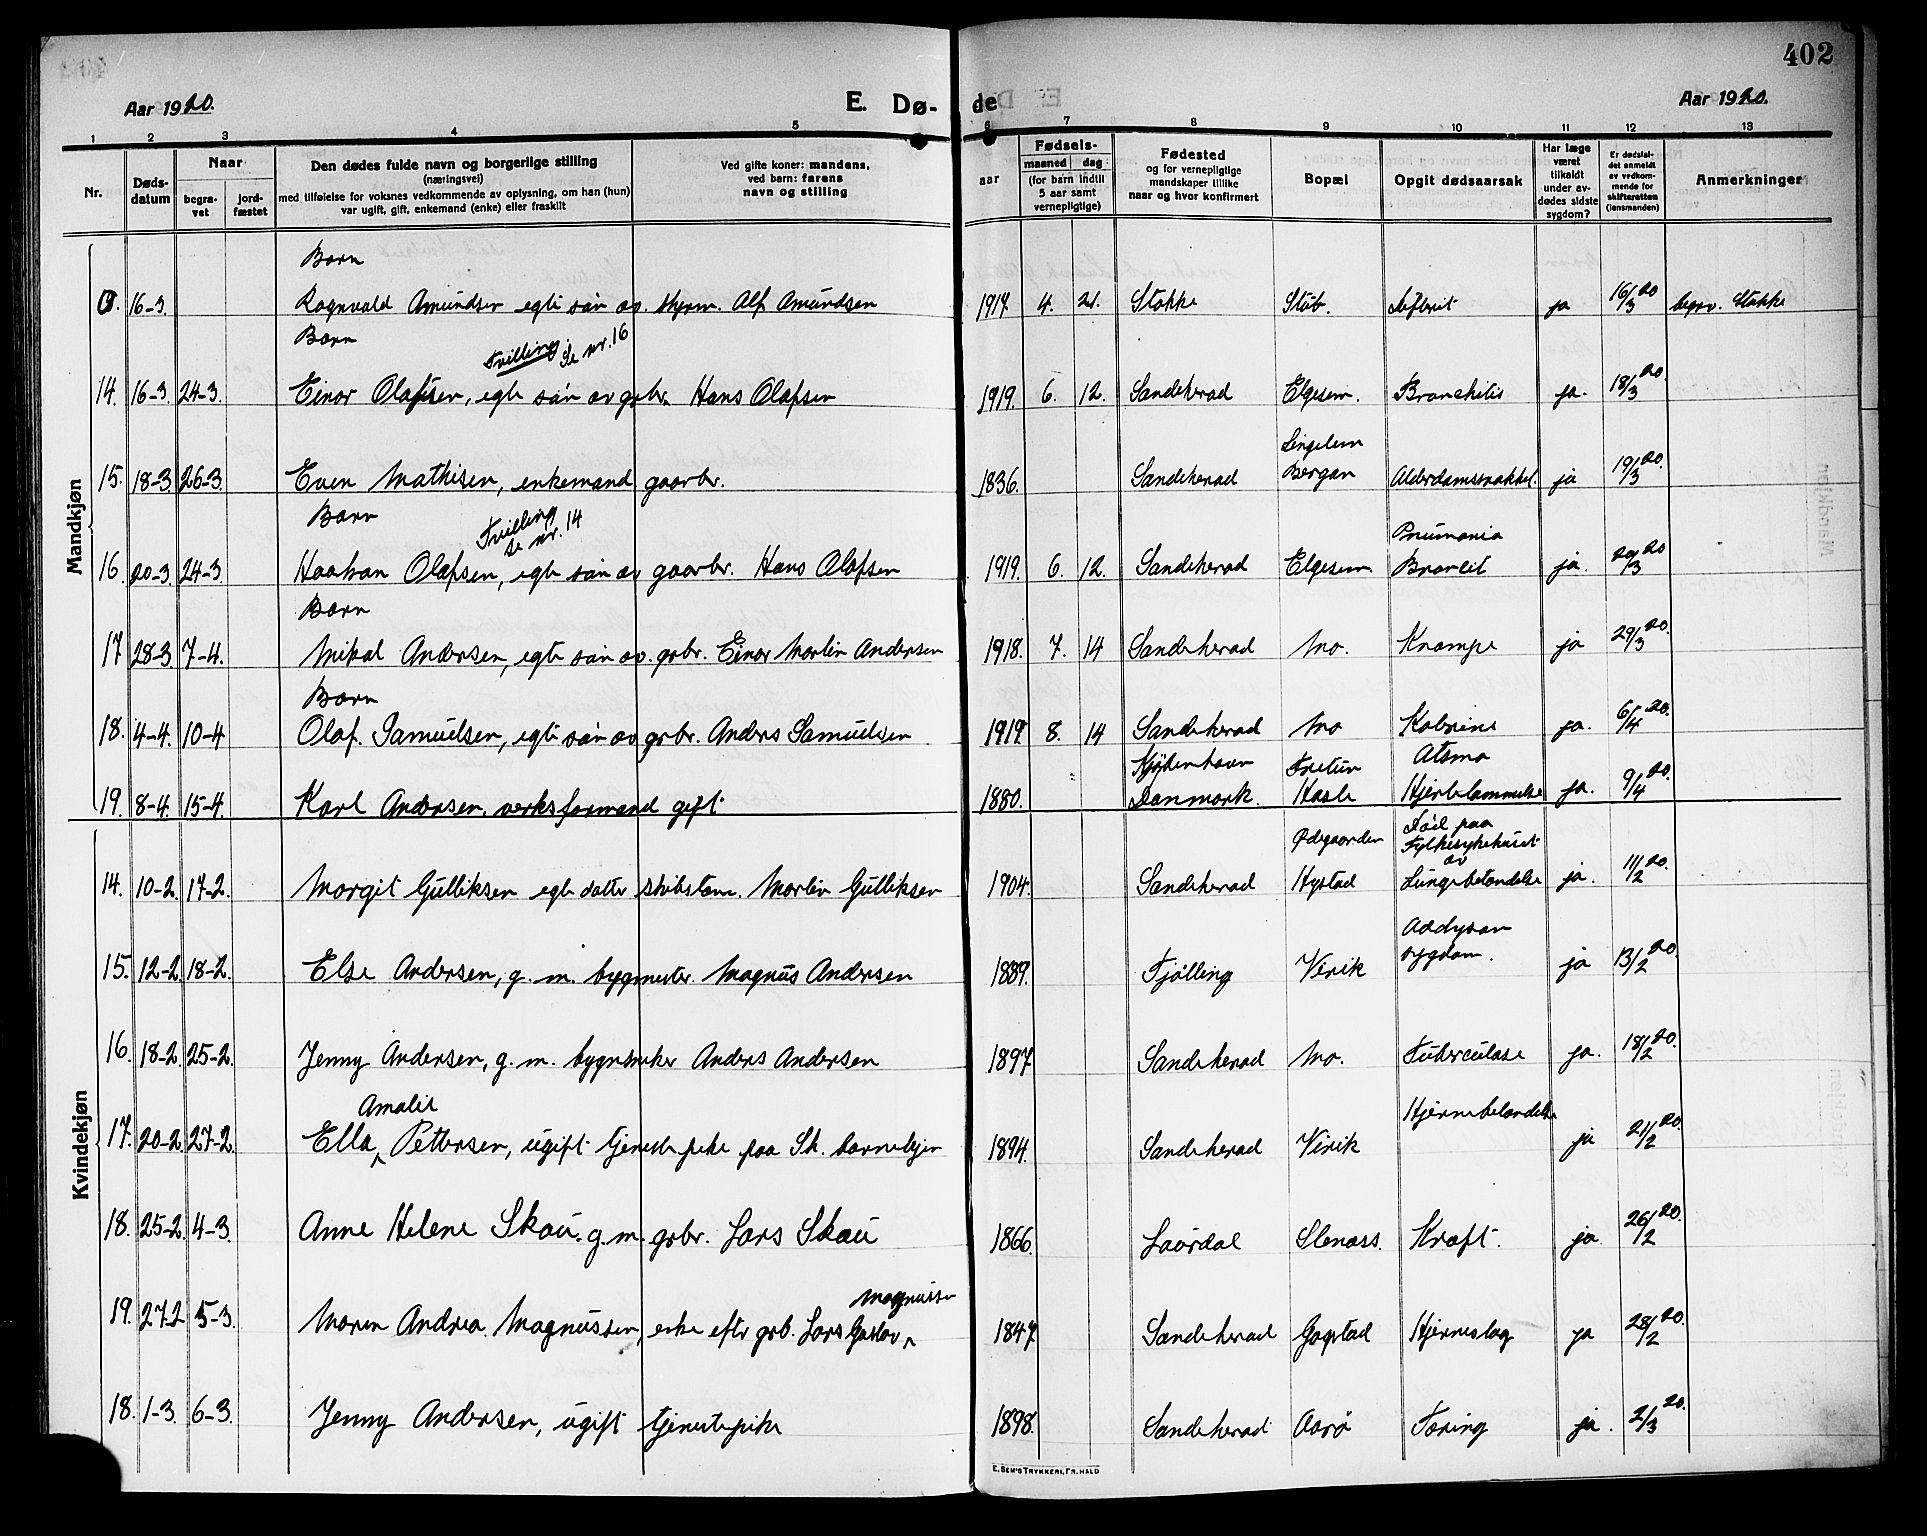 402
Aar 1920.
E. Dø-
de
Aar 1920.
1 2 3 4 5 6 7 8 9 10 11 12 13
Nr.
Døds-
datum
Naar
begra-
vet
jord-
fæstet
Den dødes fulde navn og borgerlige stilling
(næringsvei)
med tilføielse for voksnes vedkommende av oplysning, om han (hun)
var ugift, gift, enkemand (enke) eller fraskilt
Ved gifte koner: mandens,
ved barn: farens
navn og stilling
aar
Fødsels-
maaned dag
(for barn indtil
5 aar samt
vernepligtige)
Fødested
og for vernepligtige
mandskaper tillike
naar og hvor konfirmert
Bopæl
Opgit dødsaarsak
Har læge
været
tilkaldt
under av-
dødes sidste
sygdom?
Er dødsfal-
det anmeldt
av vedkom-
mende for
skifteretten
(lensmanden)
Anmerkninger
Mandkjøn
Barn
16-3. Ragnvald Amundsen egte søn av Alf Amundsen 1917. 4. 21. Stokke Stub. ja 16/3 20 begrv. Stokke
Barn
Tvilling Se nr. 16
14. 16-3. 24-3. Einar Olafsen, egte søn av gbr. Hans Olafsen 1919. 6. 12. Sandeherad Elgesem. Bronchitis ja. 18/3 20.
Lingelem
15. 18-3. 26-3. Even Mathisen, enkemand gaarbr. 1836. Sandeherad Bergan ja 19/3 20.
Barn
Tvilling
se nr. 14
Pnumonia
16. 20-3. 24-3. Haakon Olafsen, egte søn av gaarbr. Hans Olafsen 1919. 6. 12. Sandeherad Elgesem ja. 20/3 20
Barn
17 28-3. 7-4. Mikal Andersen, egte søn av gbr. Einar Martin Andersen 1918. 7. 14 Sandeherad Mo. Krampe ja 29/3 20.
Barn
18. 4-4. 10-4 Olaf Samuelsen, egte søn av gbr. Anders Samuelsen 1919 8. 14 Sandeherad Mo ja. 6/4 20.
Kjøbenhavn Atsma
19. 8-4. 15-4. Karl Andersen. verksformand gift 1880. Danmark. Hasle Hjertelammelse ja. 9/4 20.
Kvindekjøn
Ødegaarden Død paa
Fylkesykehuset
av
14. 10-2. 17-2. Margit Gulliksen egte datter skibstøm. Martin Gulliksen 1904. Sandeherad Hystad Lungebetændelse ja. 11/2 20.
Addyson
15. 12-2 18-2. Else Andersen, g. m. bygmester. Magnus Andersen 1889. Tjølling Virik sygdom. ja 13/2 20.
16. 18-2. 25-2. Jenny Andersen, g. m. Anders Andersen 1897 Sandeherad Mo. Tuberculose ja. 18/2 20.
Amalie Hjernebetændelse
17. 20-2. 27-2. Ella Pettersen, ugift tjenestepike paa Sk. barnehjem 1894. Sandeherad Virik ja 21/2 20.
18. 25-2. 4-3. Anne Helene Skau. g. m. gbr. Lars Skau 1866. Laurdal Slenass. Kræft. ja 26/2 20.
Magnussen
19. 27-2 5-3. Maren Andrea Magnussen, enke efter gbr. Lars Gustav 1847 Sandeherad Gogstad Hjerneslag ja 28/2 20.
18. 1-3. 6-3. Jenny Andersen, ugift tjenestepike 1898. Sandeherad Aarø Tæring ja. 2/3 20.
E. SEM'S TRYKKERI, FR. HALD